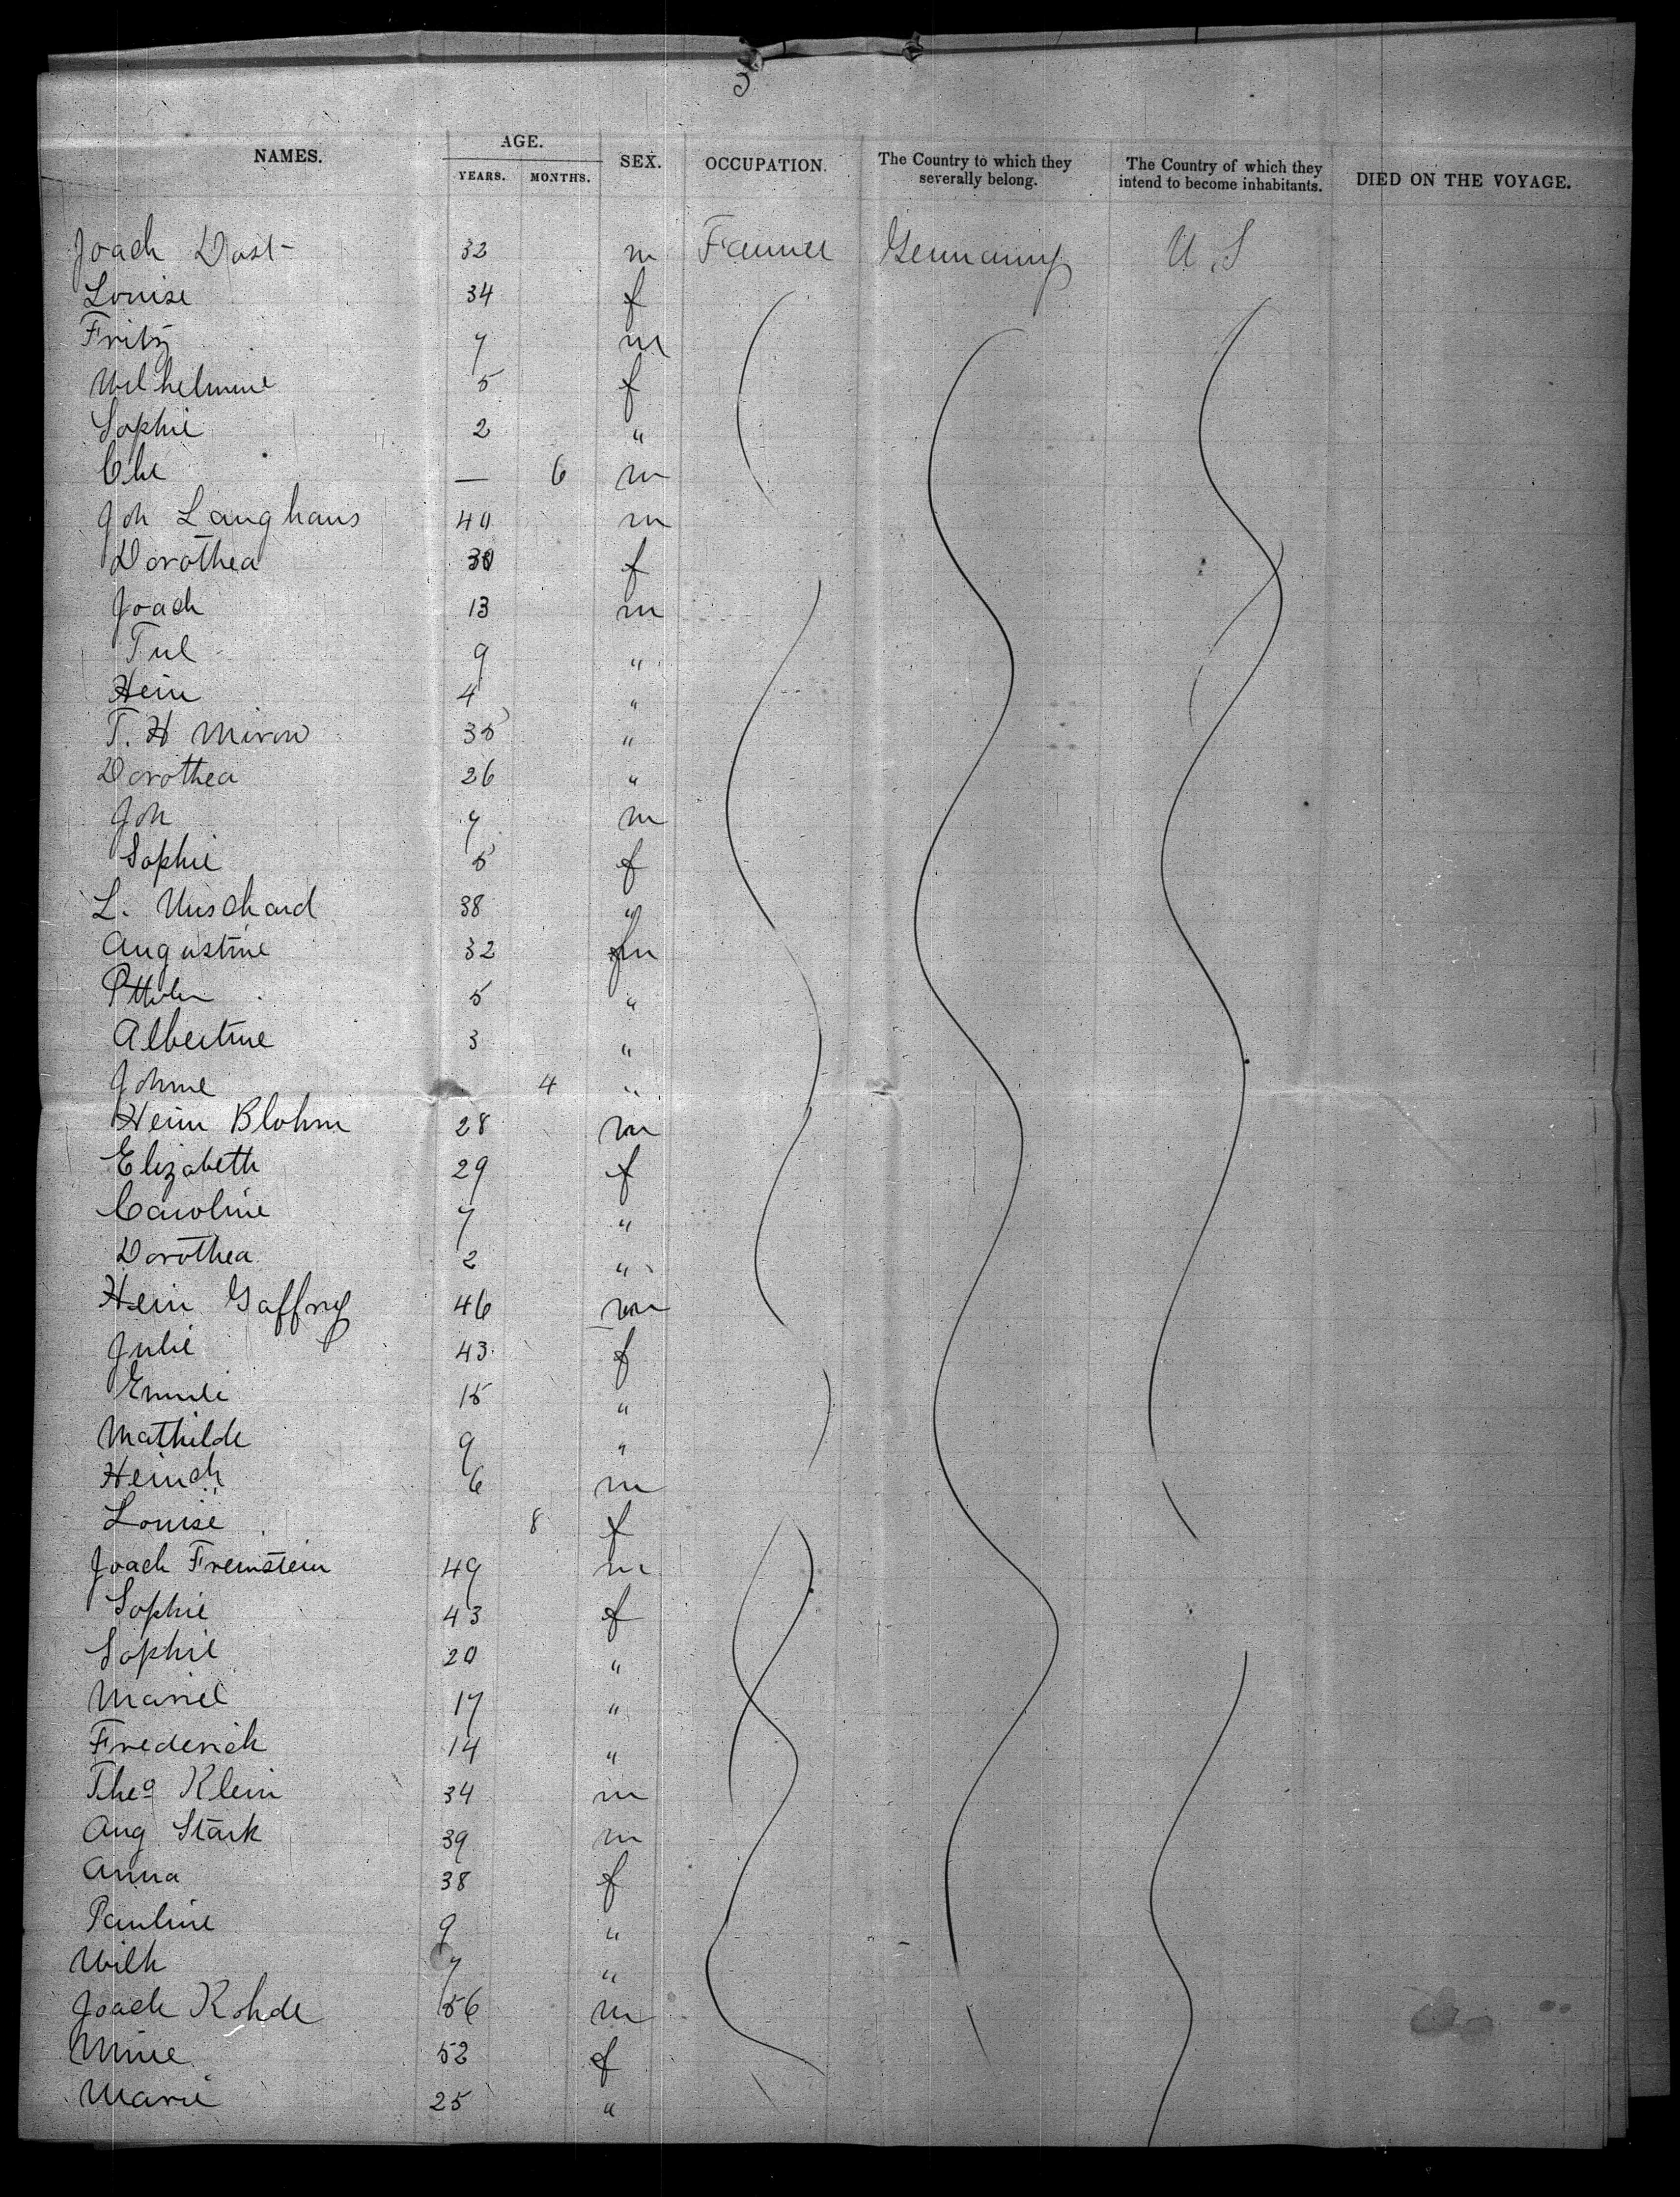 3
NAMES. AGE. YEARS. MONTHS. SEX. OCCUPATION. The Country to which they severally belong. The Country of which they intend to become inhabitants. DIED ON THE VOYAGE.
Joach Dast 32 m Farmer Germany U.S
Louise 34 f
Fritz 7 m
Wilhelmine 5 f
Sophie 2 "
Che — 6 m
Joh Langhans 40 m
Dorothea 30 f
Joach 13 m
9 "
Hein 4 "
T. H Mirow 35 "
Dorothea 26 "
Joh 7 m
Sophie 5 f
L. 38 "
Augustine 32
5 "
Albertine 3 "
Johme 4 "
Hein Blohm 28 m
Elizabeth 29 f
Caroline 7 "
Dorothea 2 "
Hein Gaffry 46 m
Julie 43 f
Emilie 15 "
Mathilde 9 "
Heinch 6 m
Louise 8 f
Joach Fremstein 49 m
Sophie 43 f
Sophie 20 "
Marie 17 "
Frederich 14 "
Theo Klein 34 m
Aug Stark 39 m
Anna 38 f
Pauline 9 "
Wilh 7 "
Joach Rohde 56 m
Mine 52 f
Marie 25 "